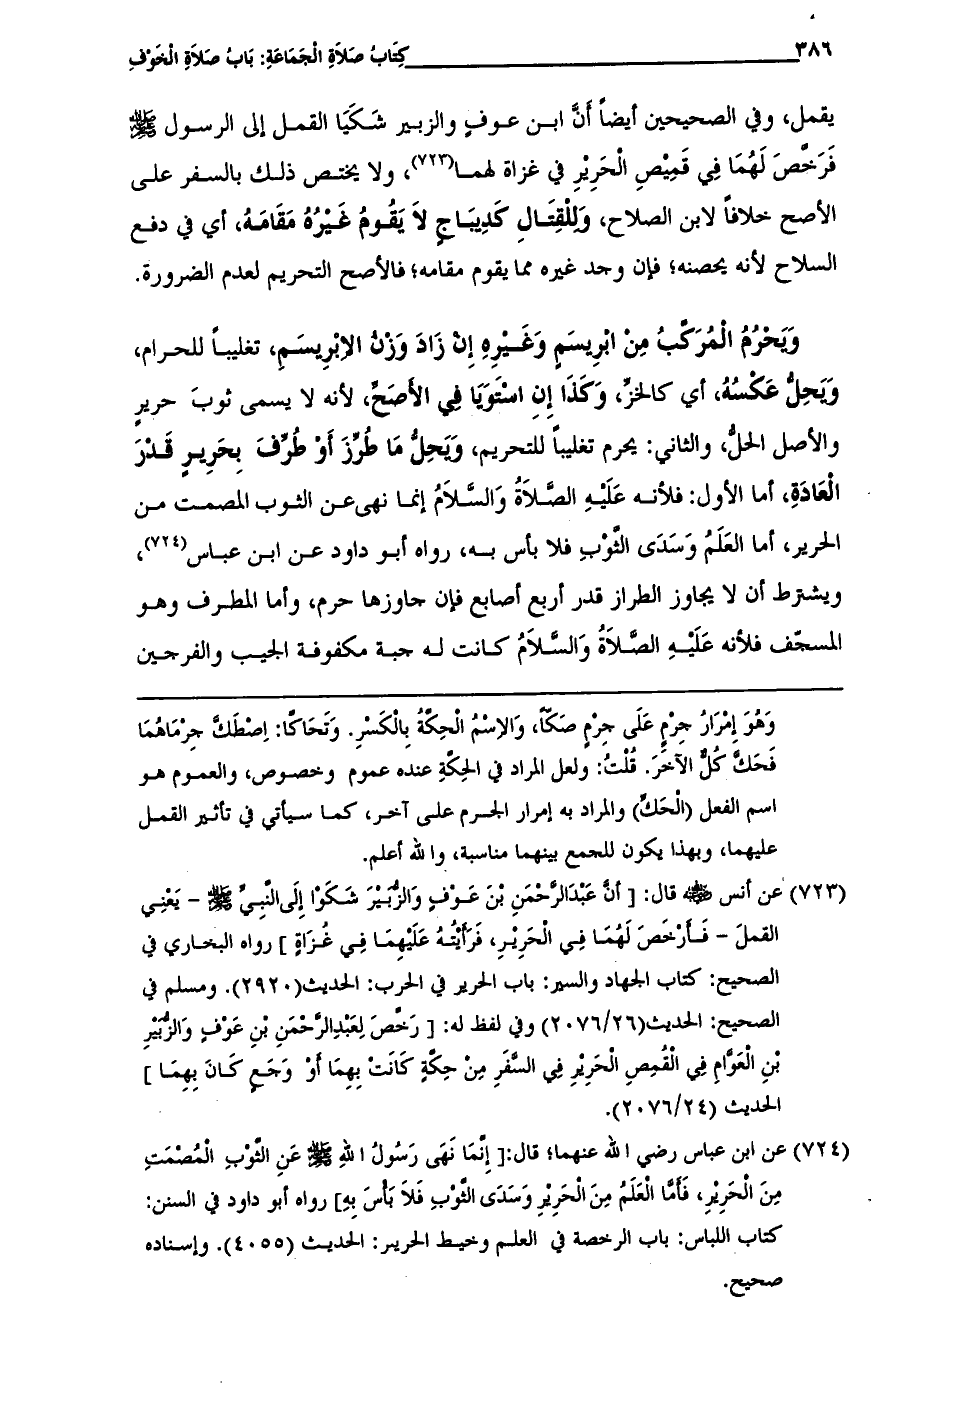 ٣٨٦ كِتَابُ صَلاَةِ الْجَمَاعَةِ: بَابُ صَلاَةِ الْخَوْفِ
يقمل، وفي الصحيحين أيضاً أَنَّ ابـن عـوفٍ والزبـير شَـكَيَا القمـل إلى الرسـول ﷺ
فَرَخَّصَ لَهُمَا فِي قَمِيْصِ الْحَرِيْرِ في غزاة لهمـا(٧٢٣)، ولا يختـص ذلـك بالسـفر علـى
الأصح خلافاً لابن الصلاح، وَلِلْقِتَـالِ كَدِيبَـاجٍ لاَ يَقُومُ غَيْرُهُ مَقَامَـهُ، أي في دفـع
السلاح لأنه يحصنه؛ فإن وجد غيره مما يقوم مقامه؛ فالأصح التحريم لعدم الضرورة.
وَيَحْرُمُ الْمُرَكَّبُ مِنْ ابْرِيسَمٍ وَغَيْرِهِ إِنْ زَادَ وَزْنُ الإِبْرِيسَـمِ، تغليبـاً للحـرام،
وَيَحِلُّ عَكْسُهُ، أي كالخزِّ، وَكَذَا إِنِ اسْتَوَيَا فِي الأَصَحِّ، لأنه لا يسمى ثوبَ حريرٍ
والأصل الحلُّ، والثاني: يحرم تغليباً للتحريم، وَيَحِلُّ مَا طُرِّزَ أَوْ طُرِّفَ بِحَرِيـرٍ قَـدْرَ
الْعَادَةِ، أما الأول: فلأنـه عَلَيْـهِ الصَّـلاَةُ وَالسَّـلاَمُ إنمـا نهى عـن الثـوب المصمـت مـن
الحرير، أما العَلَمُ وَسَدَى الثَّوْبِ فلا بأس بـه، رواه أبـو داود عـن ابن عبـاس(٧٢٤)،
ويشترط أن لا يجاوز الطراز قدر أربع أصابع فإن جاوزها حرم، وأما المطـرف وهـو
المسجّف فلأنه عَلَيْـهِ الصَّـلاَةُ وَالسَّـلاَمُ كـانت لـه جبـة مكفوفـة الجيـب والفرجـين
وَهُوَ إِمْرَارُ جِرْمٍ عَلَى جِرْمٍ صَكّاً، وَالاِسْمُ الْحِكَّةُ بِالْكَسْرِ. وَتَحَاكَّا: اِصْطَكَّ جِرْمَاهُمَا
فَحَكَّ كُلٌّ الآخَرَ. قُلْتُ: ولعل المراد في الحِكَّةِ عنده عموم وخصوص، والعموم هـو
اسم الفعل (الْحَكِّ) والمراد به إمرار الجـرم علـى آخـر، كمـا سـيأتي في تأثـير القمـل
عليهما، وبهذا يكون للجمع بينهما مناسبة، والله أعلم.
(٧٢٣) عن أنس ﷺ قال: [ أَنَّ عَبْدَالرَّحْمَنِ بْنَ عَـوْفٍ وَالزُّبَـيْرَ شَـكَوْا إِلَى النَّبِـيِّ ﷺ - يَعْنِـي
القملَ - فَـأَرْخَصَ لَهُمَـا فِـي الْحَرِيْـرِ، فَرَأَيْتُـهُ عَلَيْهِمَـا فِـي غُـزَاةٍ ] رواه البخـاري في
الصحيح: كتاب الجهاد والسير: باب الحرير في الحرب: الحديث(٢٩٢٠). ومسلم في
الصحيح: الحديث(٢٠٧٦/٢٦) وفي لفظ له: [ رَخَّصَ لِعَبْدِالرَّحْمَنِ بْنِ عَوْفٍ وَالزُّبَيْرِ
بْنِ الْعَوَّامِ فِي الْقُمِصِ الْحَرِيْرِ فِي السَّفَرِ مِنْ حِكَّةٍ كَانَتْ بِهِمَا أَوْ وَجَعٍ كَـانَ بِهِمَـا ]
الحديث (٢٠٧٦/٢٤).
(٧٢٤) عن ابن عباس رضي الله عنهما؛ قال:[ إِنَّمَا نَهَى رَسُولُ اللهِ ﷺ عَنِ الثَّوْبِ الْمُصْمَتِ
مِنَ الْحَرِيْرِ، فَأَمَّا الْعَلَمُ مِنَ الْحَرِيْرِ وَسَدَى الثَّوْبِ فَلاَ بَأْسَ بِهِ] رواه أبو داود في السنن:
كتاب اللباس: باب الرخصة في العلـم وخيـط الحريـر: الحديـث (٤٠٥٥). وإسـناده
صحيح.